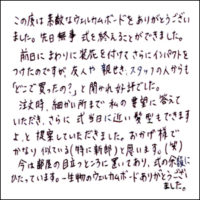 この度は素敵なウェルカムボードをありがとうござい
ました。先日無事 式を終えることができました。
前日にまわりに花を付けてさらにインパクトを
つけたのですが、友人や 親せき、スタッフの人からも
「どこで買ったの?」と聞かれ好評でした。
注文時、細かい所まで私の要望に答えて
いただき、さらに式当日に近い髪型もできます
よ、と提案していただきました。おかげ様で
かなり似ている(特に新郎)と思います。(笑)
今は部屋の目立つところに置いてあり、式の余韻に
ひたっています。一生物のウェルカムボードありがとうござい
ました。